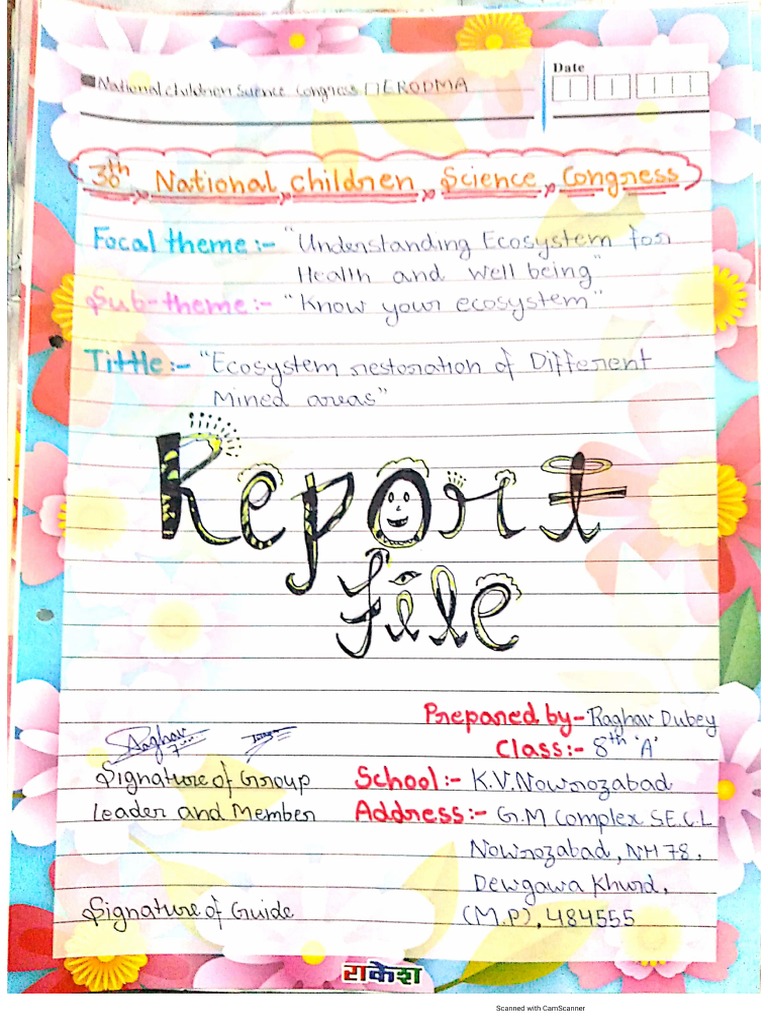 National Children Science Congress ERODMA
Date
30th National Children Science Congress
Focal theme :- "Understanding Ecosystem for
Health and well being"
Sub-theme :- "Know your ecosystem"
Tittle :- "Ecosystem restoration of Different
Mined areas"
Report
file
Prepared by- Raghav Dubey
Class:- 8th 'A'
Raghav
Signature of Group
Leader and Member
School :- K.V. Nowrozabad
Address :- G.M Complex S.E.C.L
Nowrozabad, NH 78,
Dewgawa Khurd,
Signature of Guide
(M.P), 484555
राकेश
Scanned with CamScanner